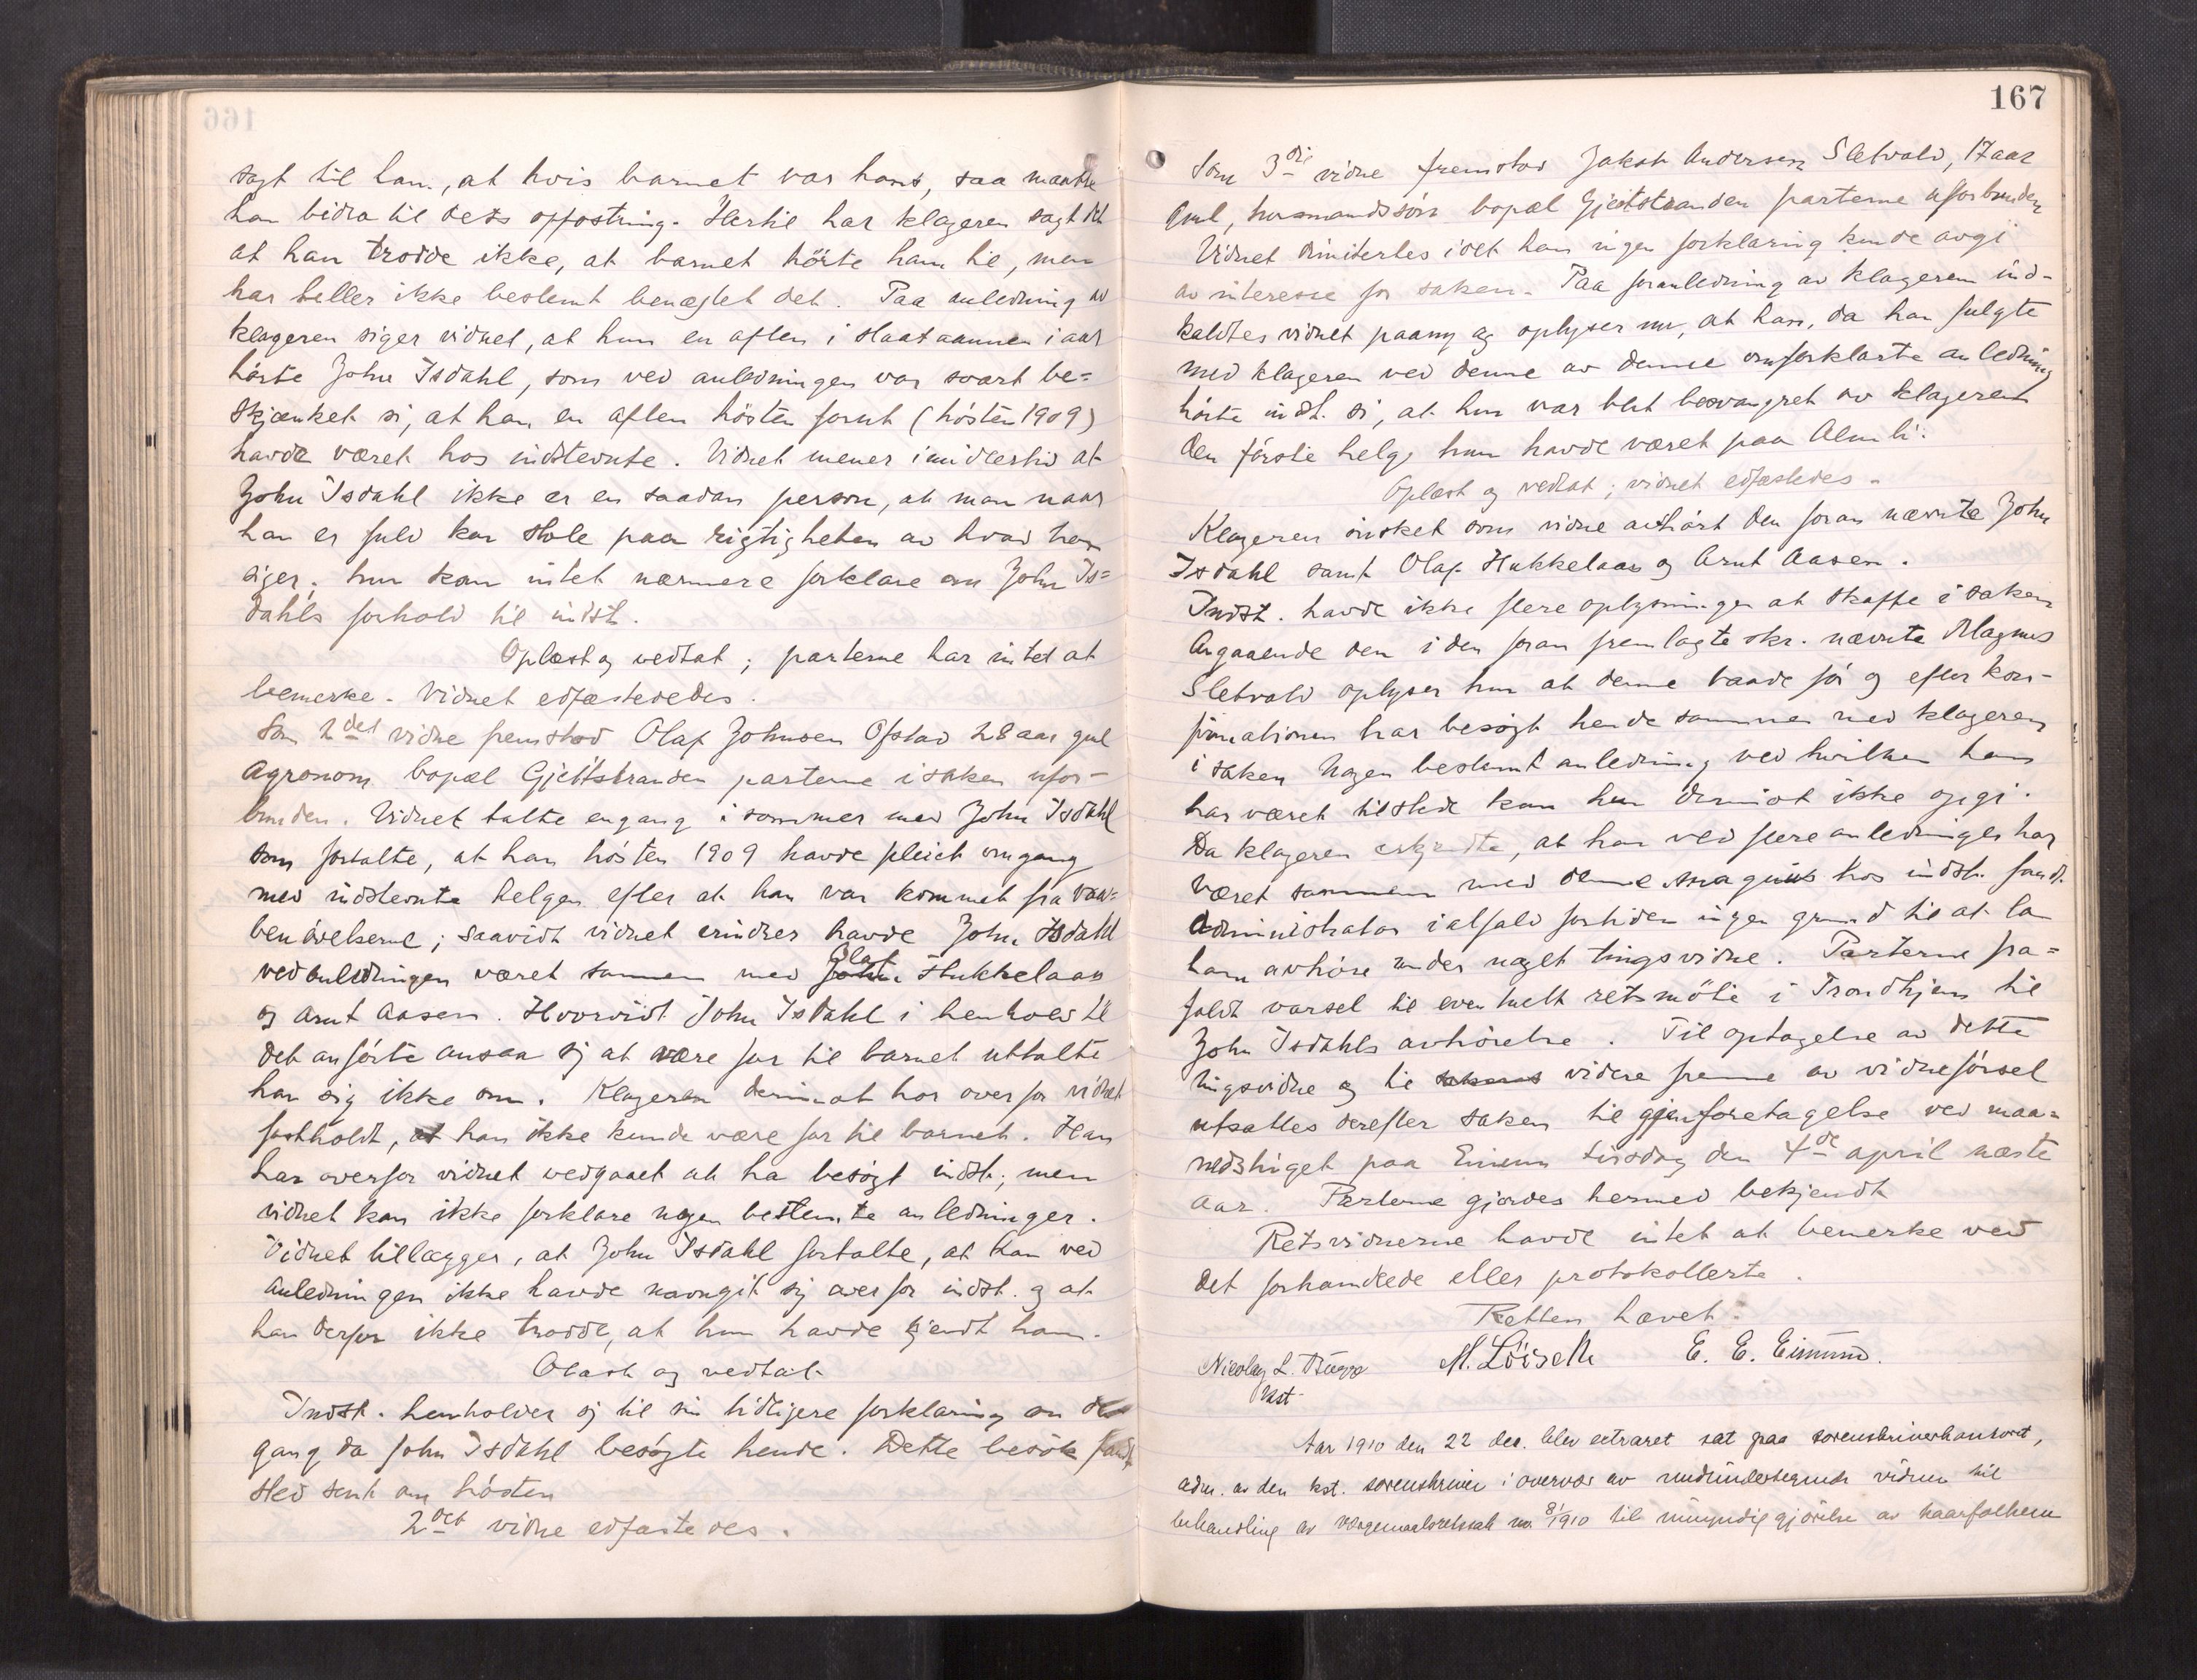 sagt til ham, at hvis barnet var hans, saa maatte
han bidra til dets opfostring. Hertil har klageren sagt det
at han trodde ikke, at barnet hörte ham til, men
har heller ikke bestemt benægtet det. Paa anledning av
klageren siger vidnet, at hun en aften i slaataannen i aar
hørte John Isdahl, som ved anledningen var svært be=
skjænket si, at han en aften hösten forut (hösten 1909)
havde været hos indstevnte. Vidnet mener imidlertid at
John Isdahl ikke er en saadan person, at man naar
han er fuld kan stole paa rigtigheten av hvad han
siger; hun kan intet nærmere forklare om John Is=
dahls forhold til indst.
Oplæst og vedtat; parterne har intet at
bemerke. Vidnet edfæstededes.
Som 2det vidne fremstod Olaf Johnsen Ofstad 28 aar gml
Agronom bopæl Gjeitstranden parterne i saken ufor-
bunden. Vidnet talte engang i sommer med John Isdahl
som fortalte, at han hösten 1909 havde pleiet omgang
med indstevnte helgen efter at han var kommet fra vaa=
benövelserne; saavidt vidnet erindrer havde John Isdahl
ved anledningen været sammen med John Olaf Hukkelaas
og Arnt Aasen. Hvorvidt John Isdahl i henhold til
det anførte ansaa sig at være far til barnet uttalte
han sig ikke om. Klageren derimot har overfor vidnet
fastholdt, at han ikke kunde være far til barnet. Han
har overfor vidnet vedgaaet at ha besögt indst; men
vidnet kan ikke forklare nogen bestemte anledninger.
Vidnet tillægger, at John Isdahl fortalte, at han ved
anledningen ikke havde navngit sig overfor indst. og at
han derfor ikke trodde, at hun havde kjendt ham.
Olæst og vedtat
Indst. henholder sig til sin tidligere forklaring om den
gang da John Isdahl besøgte hende. Dette besök fandt
sted sent om hösten
2det vidne edfæstedes.
167
Som 3die vidne fremstod Jakob Andersen Sletvold, 17 aar
gml, husmandssön bopæl Gjeitstranden parterne uforbunden
Vidnet dimitertes idet han ingen forklaring kunde avgi
av interesse for saken. Paa foranledning av klageren ind-
kaldtes vidnet paany og oplyser nu, at han, da han fulgte
med klageren ved denne av denne omforklarte anledning
hörte indst. si, at hun var blit besvangret av klageren
den förste helg hun havde været paa Almli.
Oplæst og vedtat; vidnet edfæstedes.
Klageren önsket som vidne avhört den foran nævnte John
Isdahl samt Olaf Hukkelaas og Arnt Aasen.
Indst. havde ikke flere oplysninger at skaffe i saken
Angaaende den i den foran fremlagte skr. nævnte Magnus
Sletvold oplyser hun at denne baade för og efter kon-
firmationen har besögt hende sammen med klageren
i saken Nogen bestemt anledning ved hvilken han
har været tilstede kan hun derimot ikke opgi.
Da klageren erkjendte, at han ved flere anledninger har
været sammen med denne Magnus hos indst. fandt
administrator ialfald fortiden ingen grund til at la
ham avhöre under noget tingsvidne. Parterne fra=
faldt varsel til eventuelt retsmöte i Trondhjem til
John Isdahls avhörelse. Til optagelse av dette
tingsvidne og til videre fremme av vidneförsel
utsattes derefter saken til gjenforetagelse ved maa=
nedstinget paa Eimun tirsdag den 4de april næste
aar. Parterne gjordes hermed bekjendt
Retsvidnerne havde intet at bemerke ved
det forhandlede eller protokollerte.
Retten hævet.
Nicolay L. Bugge M. Löiseth E. E. Eimund.
kst.
Aar 1910 den 22 des. blev extraret sat paa sorenskriverkontoret,
adm. av den kst. sorenskriver i overvær av undertegnede vidner til
behandling av vergemaalsretssak no 8/1910 til umyndiggjörelse av kaarfolkene